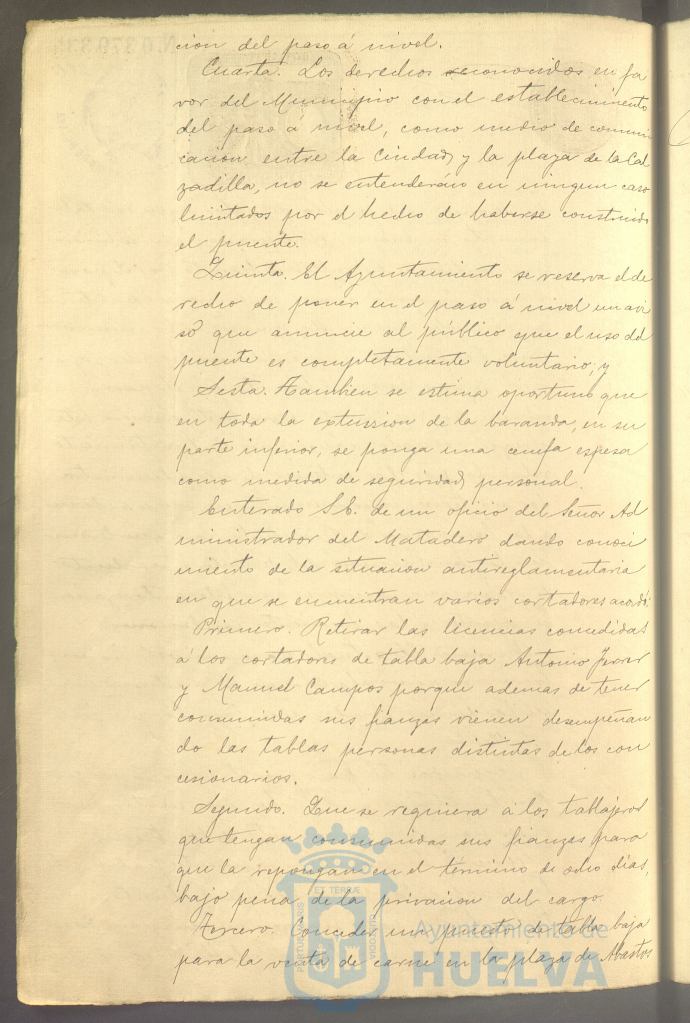 cion del paso á nivel.
Cuarta. Los derechos reconocidos en fa
vor del Municipio con el establecimiento
del paso á nivel, como medio de comuni
cacion entre la Ciudad y la plaza de la Cal
zadilla, no se entenderán en ningun caso
limitados por el hecho de haberse construido
el puente.
Quinta. El Ayuntamiento se reserva el de
recho de poner en el paso á nivel un avi
so que anuncie al público que el uso del
puente es completamente voluntario; y
Sesta. Tambien se estima oportuno que
en toda la extension de la baranda, en su
parte inferior, se ponga una cenefa espesa
como medida de seguridad personal.
Enterado S.E. de un oficio del Señor Ad
ministrador del Matadero dando conoci
miento de la situacion antireglamentaria
en que se encuentran varios cortadores acordó:
Primero. Retirar las licencias concedidas
á los cortadores de tabla baja Antonio Ferrer
y Manuel Campos porque ademas de tener
consumidas sus fianzas vienen desempeñan
do las tablas personas distintas de los con
cesionarios.
Segundo. Que se requiera á los tablajeros
que tengan consumidas sus fianzas para
que la repongan en el termino de ocho dias,
bajo pena de la privacion del cargo.
Tercero. Conceder un puesto de tabla baja
para la venta de carne en la plaza de Abastos
Ayuntamiento de
HUELVA